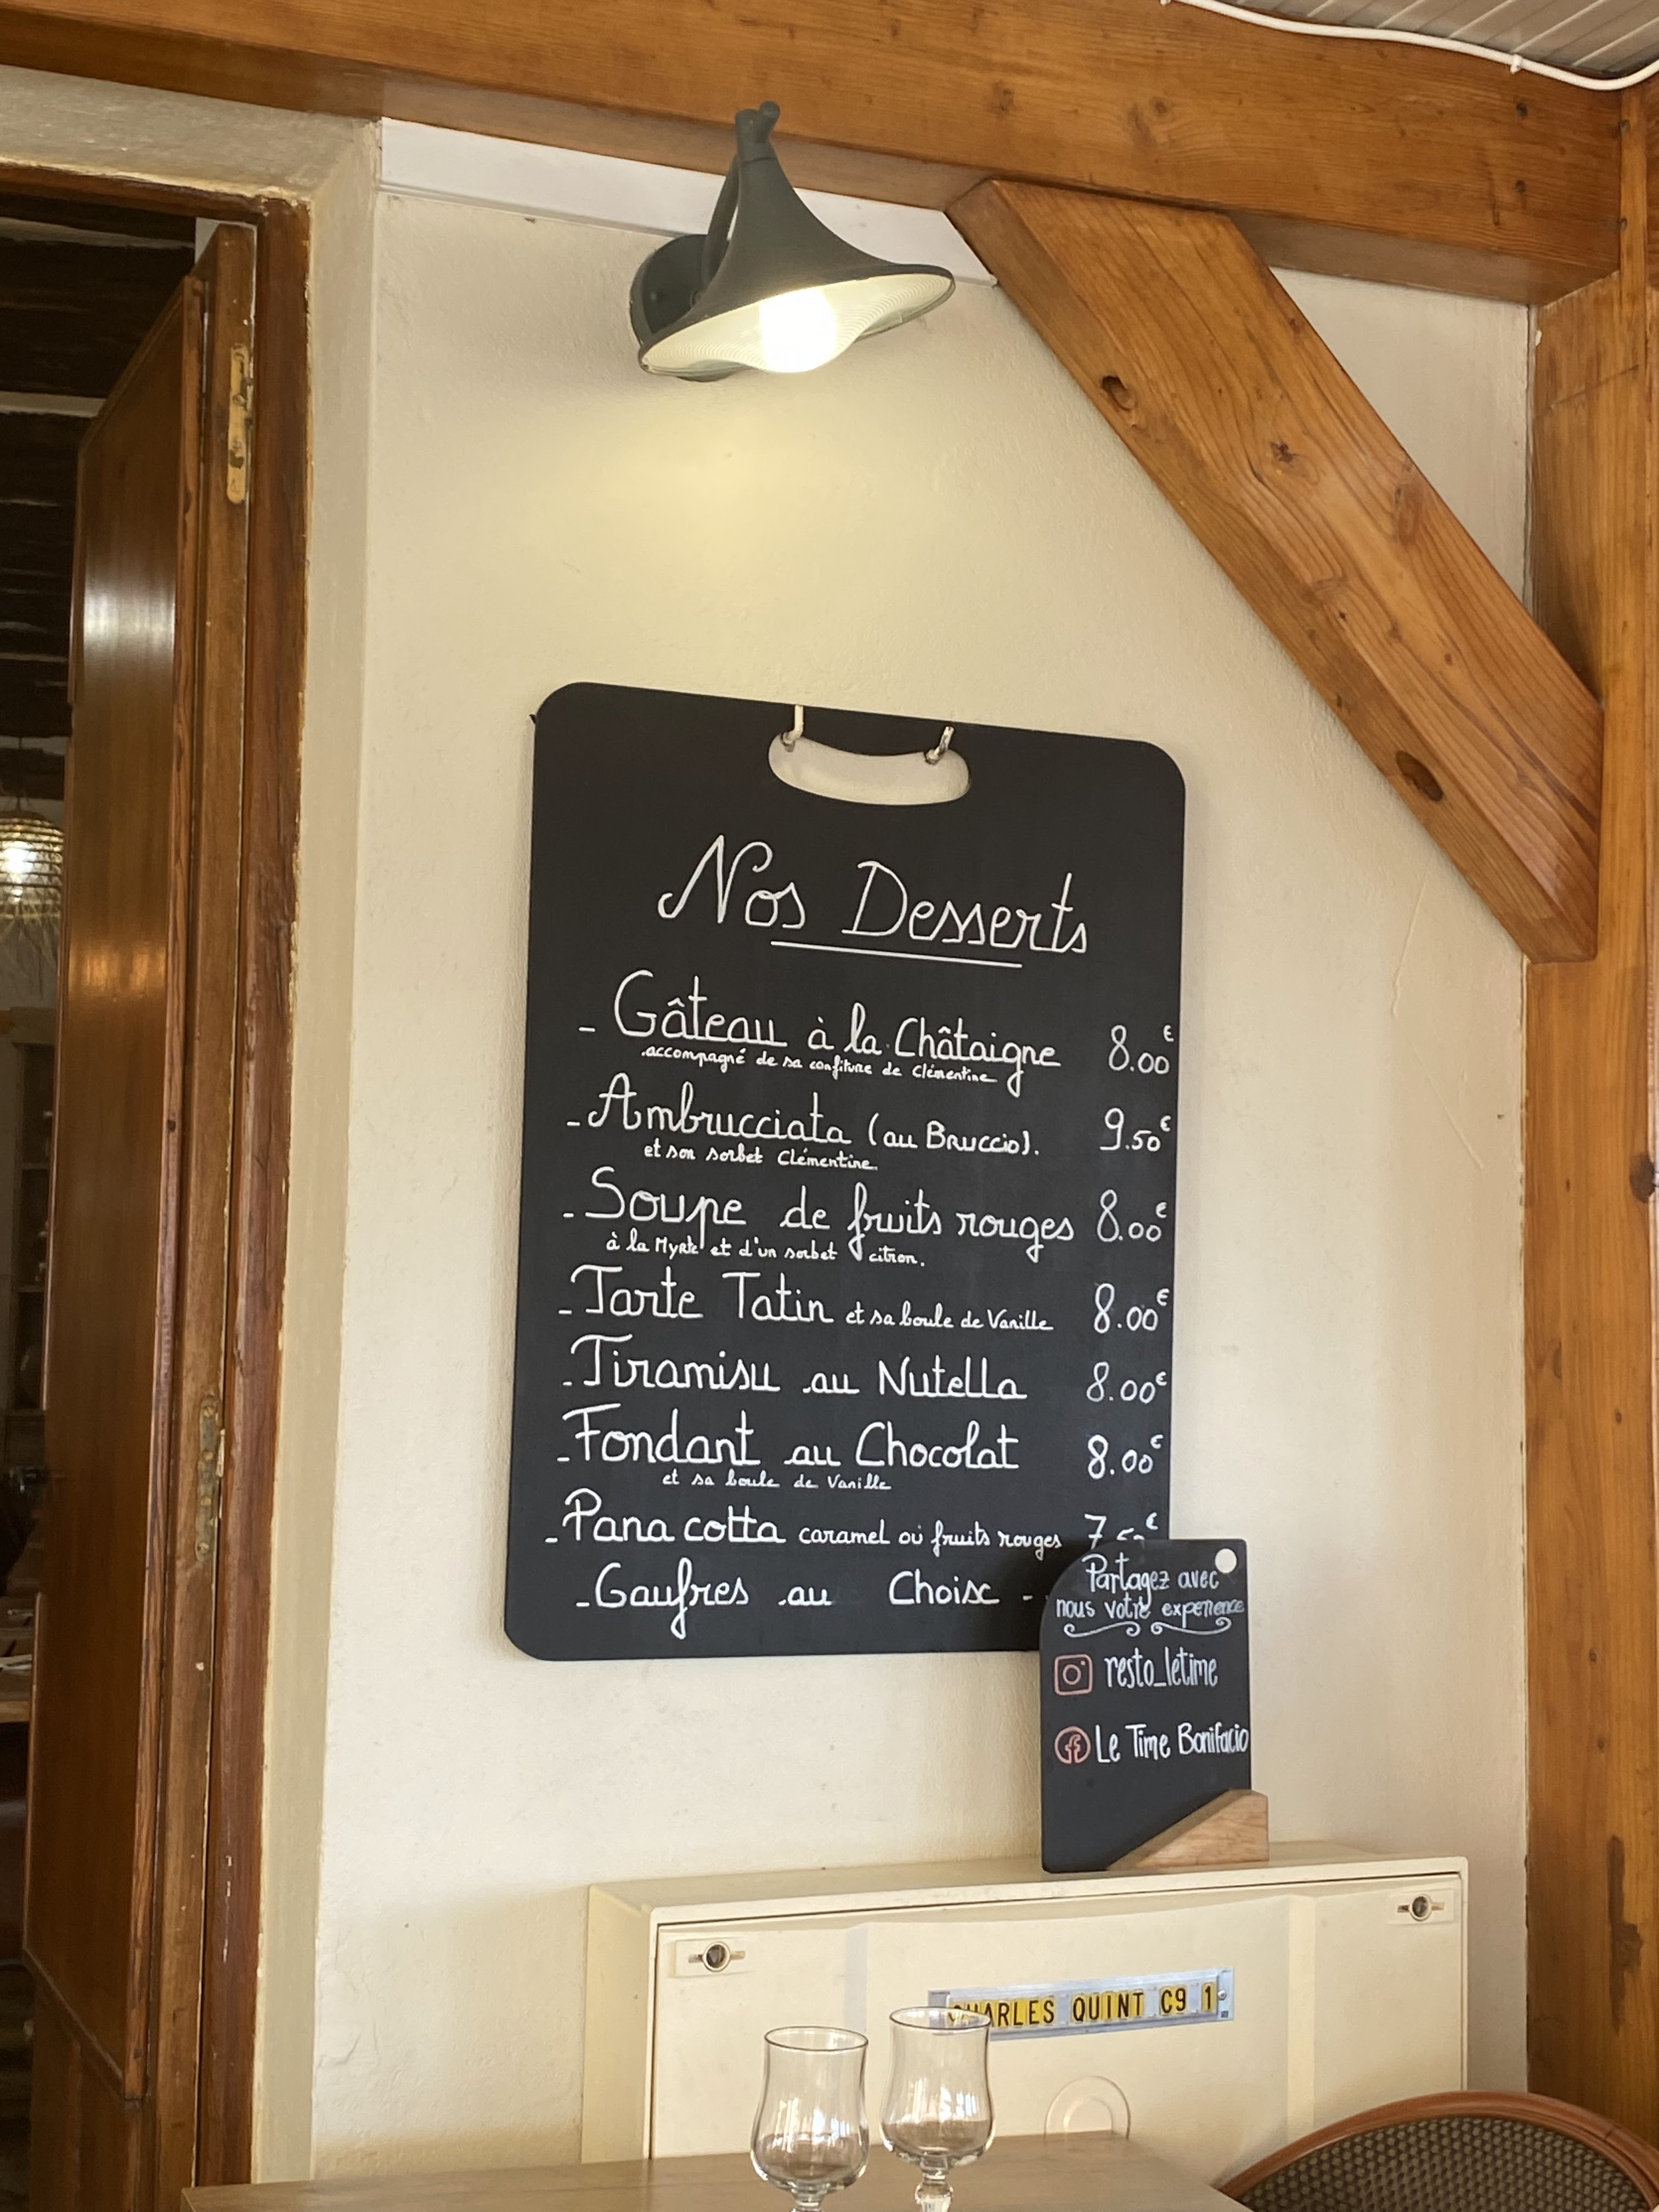 Nos Desserts
- Gâteau à la Châtaigne 8.00€
accompagné de sa confiture de Clémentine
- Ambrucciata (au Bruccio). 9.50€
et son sorbet Clémentine.
- Soupe de fruits rouges 8.00€
à la Myrte et d'un sorbet citron.
- Tarte Tatin et sa boule de Vanille 8.00€
- Tiramisu au Nutella 8.00€
- Fondant au Chocolat 8.00€
et sa boule de Vanille
- Pana cotta caramel ou fruits rouges 7.50€
- Gaufres au Choix -
Partagez avec
nous votre experience
resto_letime
Le Time Bonifacio
CHARLES QUINT C9 1